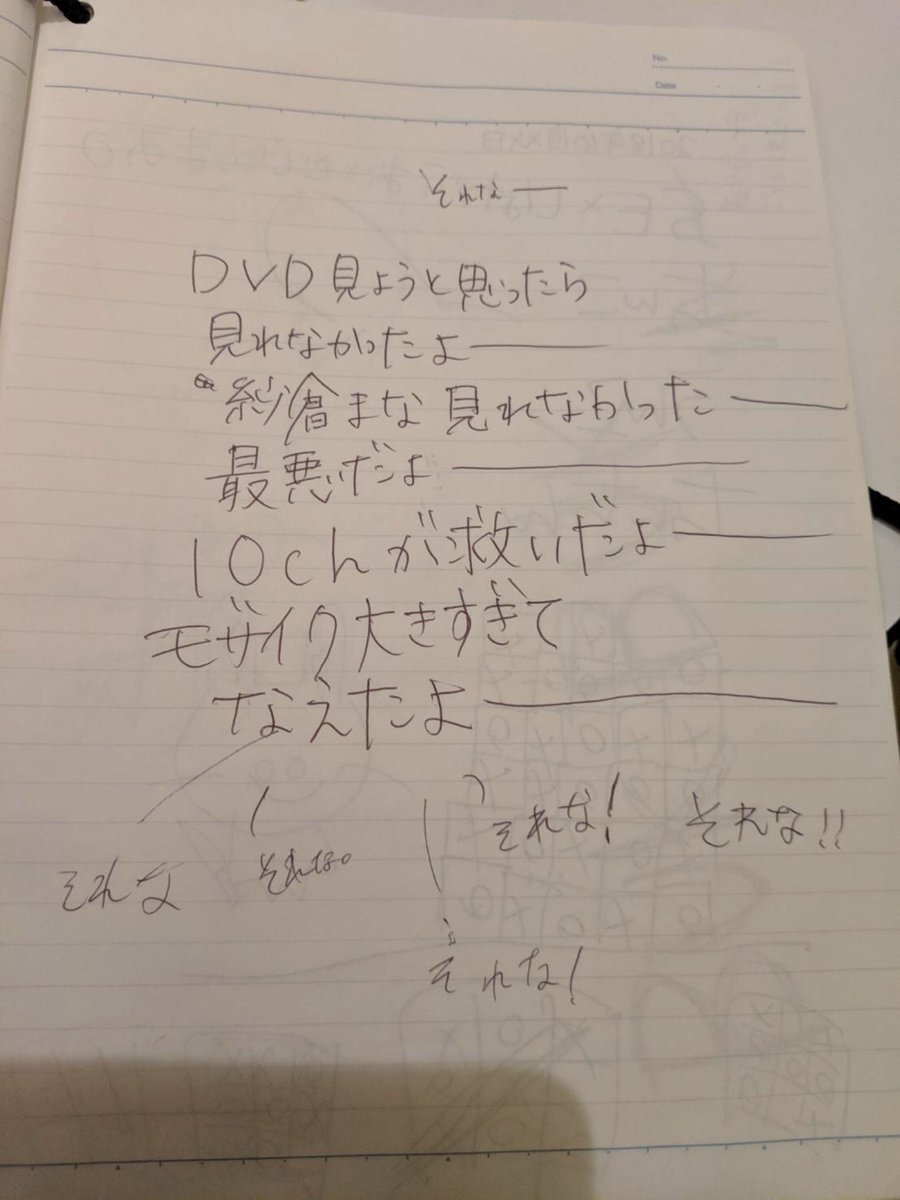 No.
Date
それな―
DVD見ようと思ったら
見れなかったよ―
紗倉まな見れなかった―
最悪だよ―
10chが救いだよ―
モザイク大きすぎて
なえたよ―
それな! それな!!
それな それな。
それな!